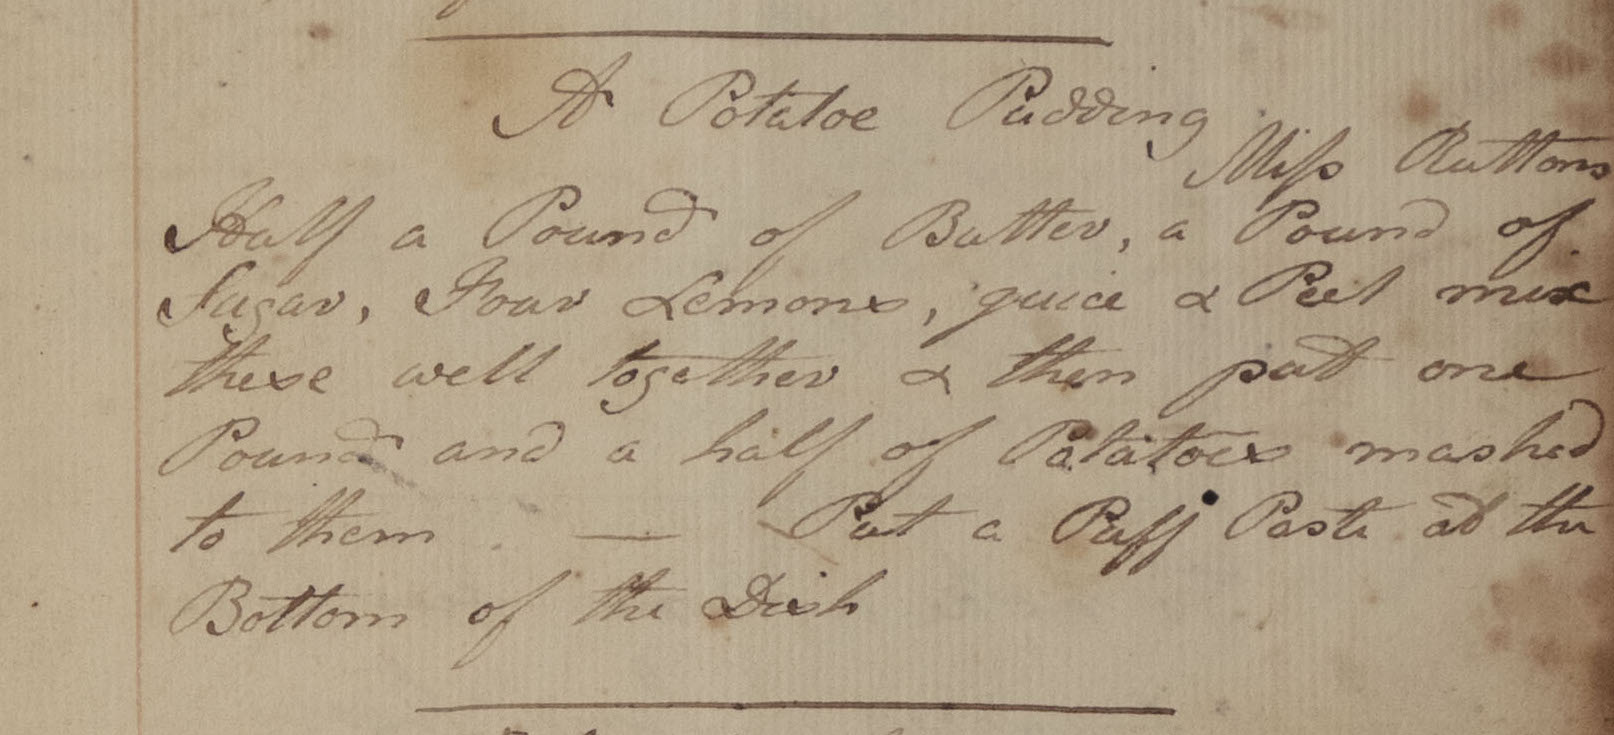 A Potatoe Pudding
Miss Ruttons
Half a Pound of Butter, a Pound of
Sugar, Four Lemons, juice & Peel mix
these well together & then put one
Pound and a half of Potatoes mashed
to them. — Put a Puff Paste at the
Bottom of the Dish